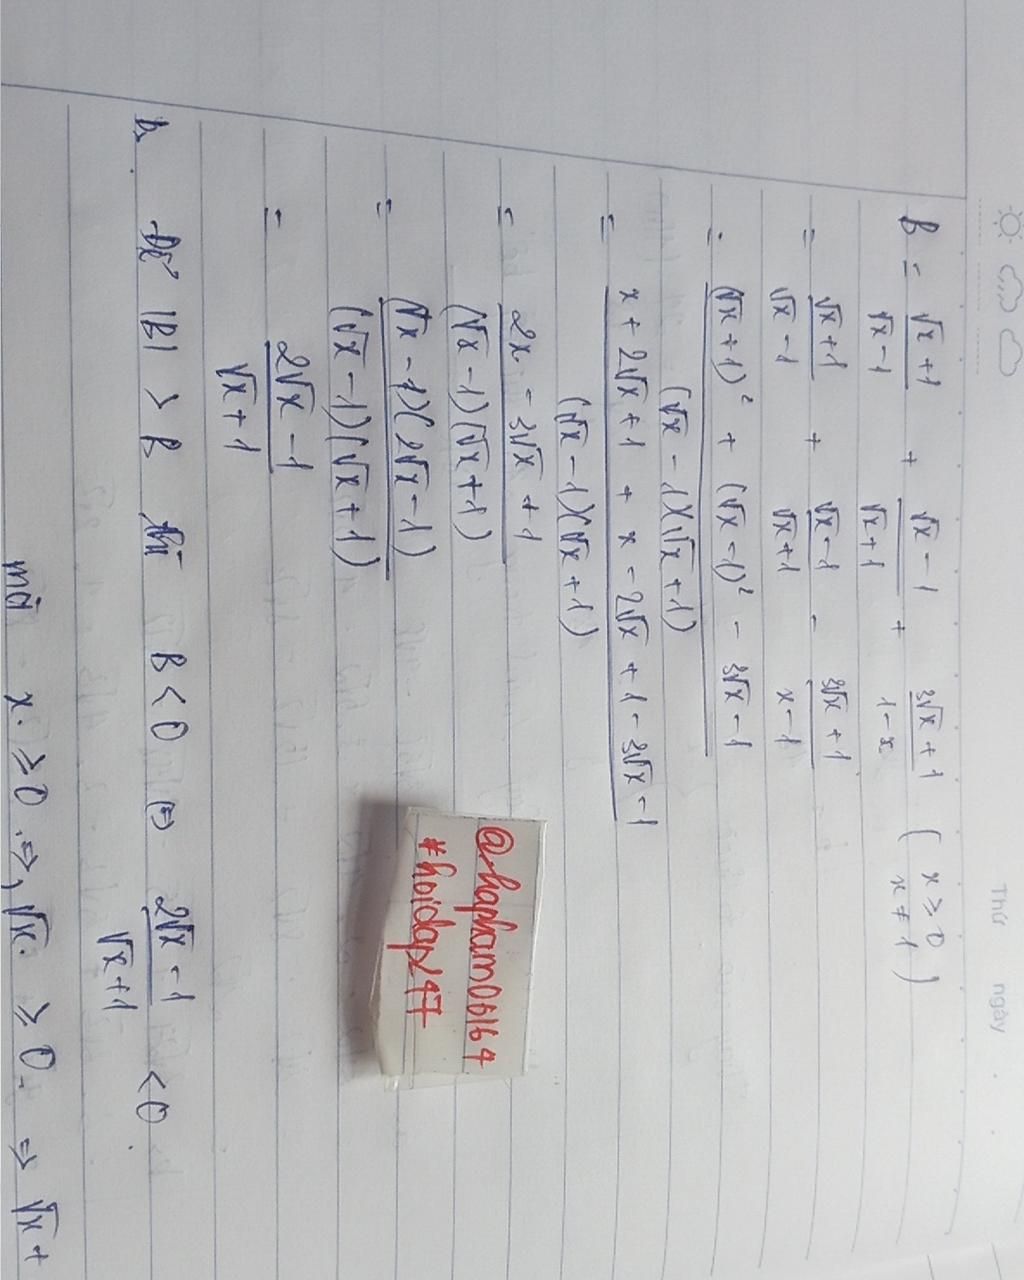 Thứ ngày
B = \frac{\sqrt{x}+1}{\sqrt{x}-1} + \frac{\sqrt{x}-1}{\sqrt{x}+1} + \frac{3\sqrt{x}+1}{1-x} (x ≥ 0 x ≠ 1)
= \frac{\sqrt{x}+1}{\sqrt{x}-1} + \frac{\sqrt{x}-1}{\sqrt{x}+1} - \frac{3\sqrt{x}+1}{x-1}
= \frac{(\sqrt{x}+1)^2 + (\sqrt{x}-1)^2 - 3\sqrt{x}-1}{(\sqrt{x}-1)(\sqrt{x}+1)}
= \frac{x+2\sqrt{x}+1+x-2\sqrt{x}+1-3\sqrt{x}-1}{(\sqrt{x}-1)(\sqrt{x}+1)}
= \frac{2x-3\sqrt{x}+1}{(\sqrt{x}-1)(\sqrt{x}+1)}
= \frac{(\sqrt{x}-1)(2\sqrt{x}-1)}{(\sqrt{x}-1)(\sqrt{x}+1)}
= \frac{2\sqrt{x}-1}{\sqrt{x}+1}
@hapham06164
#hoidap247
b. Để |B| > B thì B < 0 ⇔ \frac{2\sqrt{x}-1}{\sqrt{x}+1} < 0.
mà x ≥ 0 ⇒ \sqrt{x} ≥ 0 ⇒ \sqrt{x} +